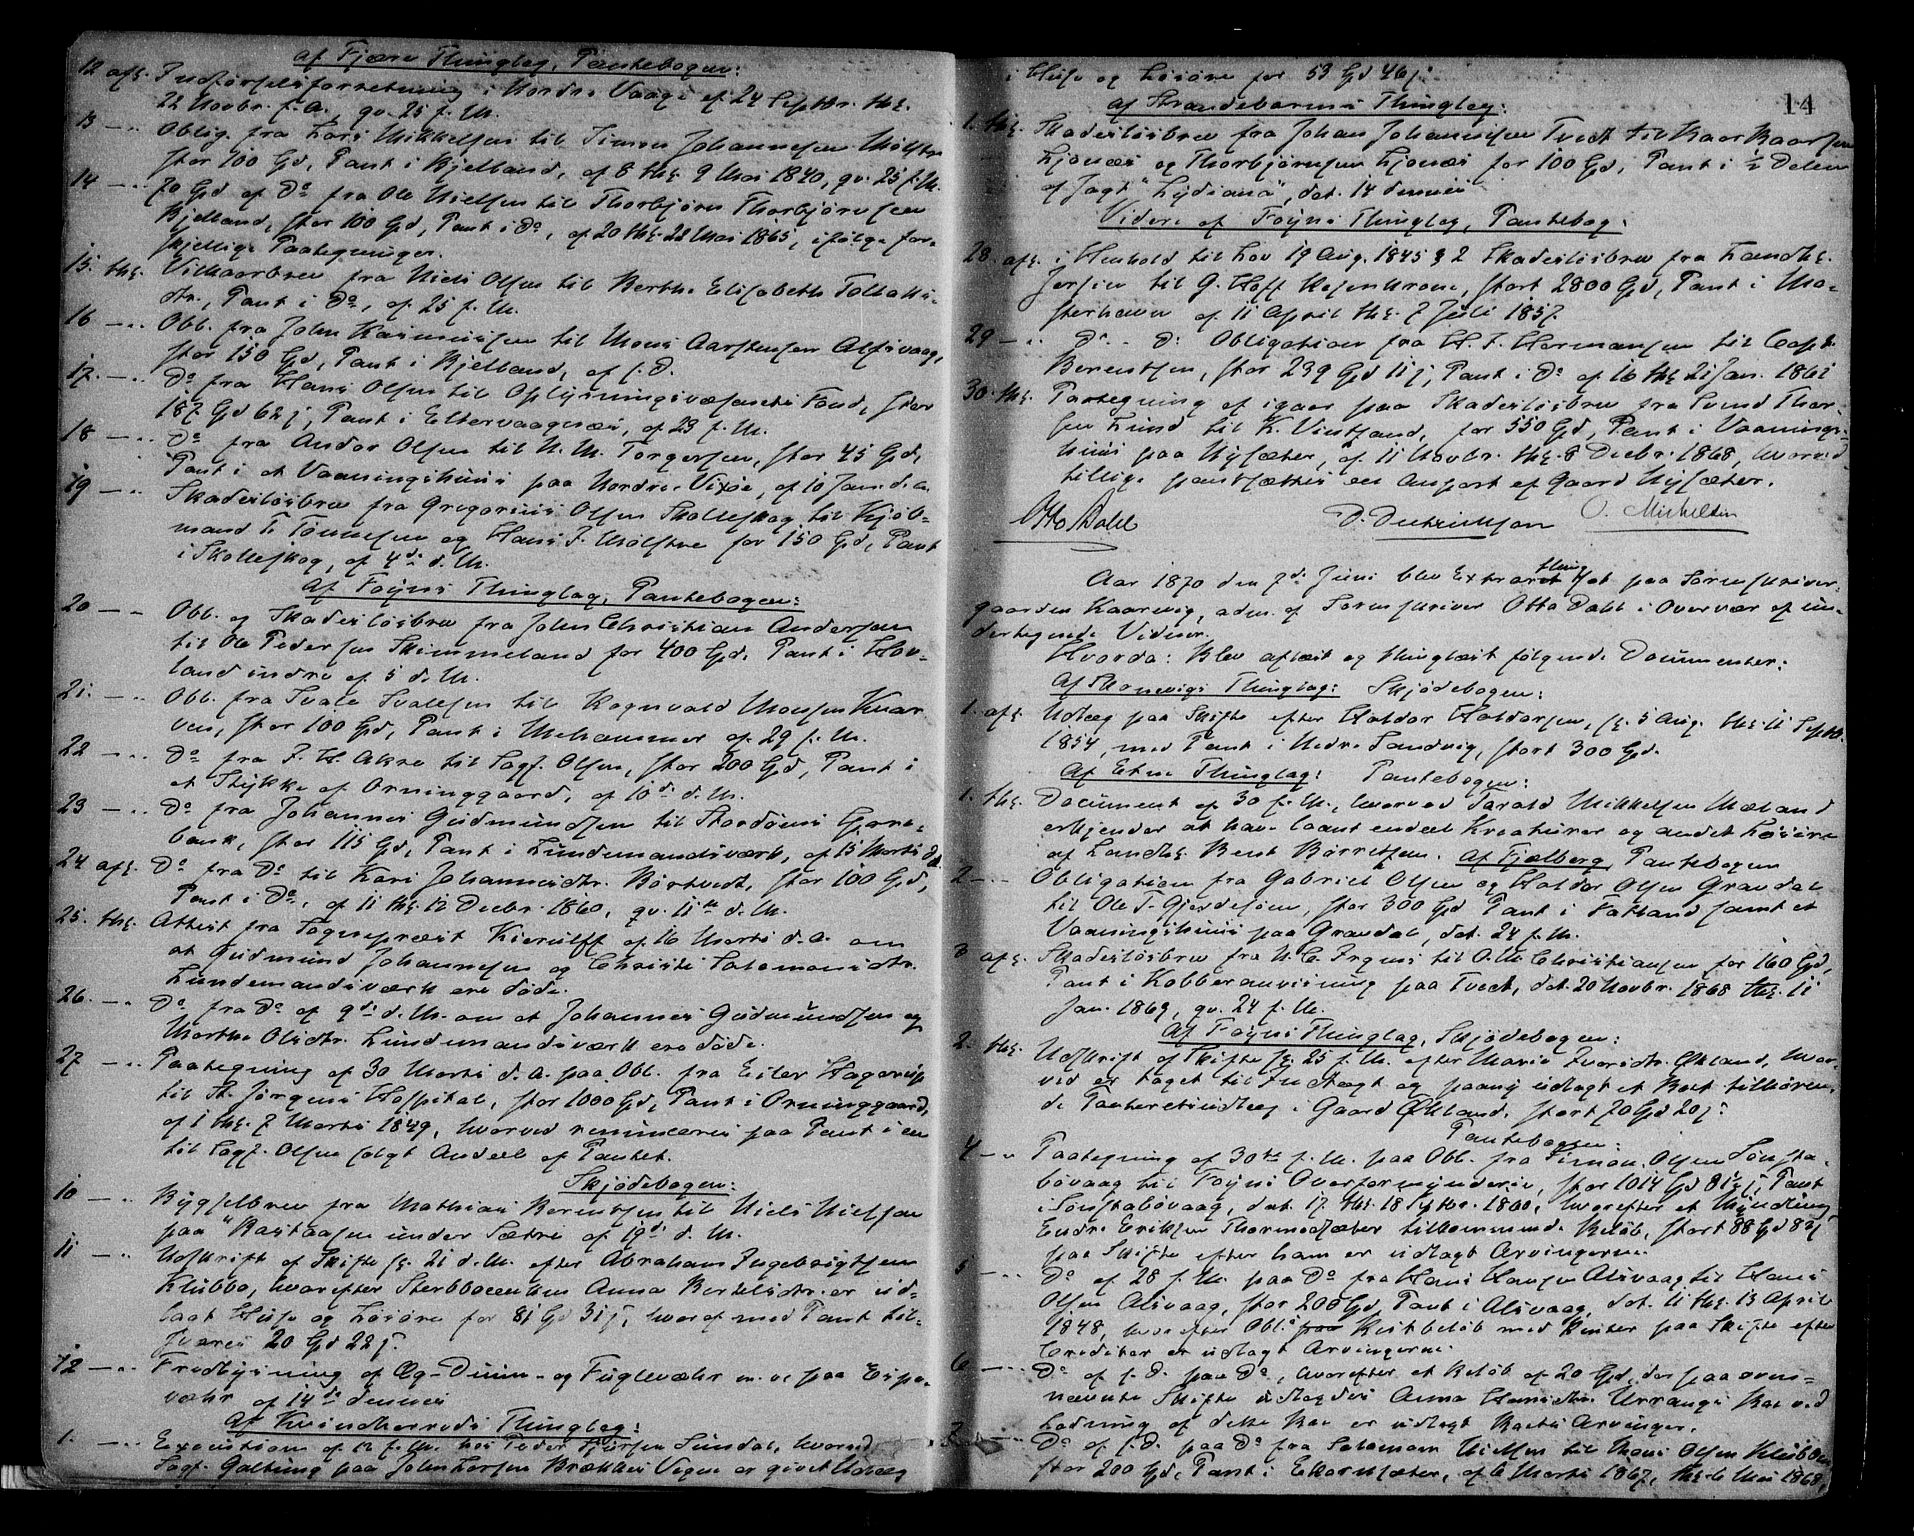 af Fjære Thinglag, Pantebogen:
12 afl. Indførselsforretning i Nordre Vaage af 24 Septbr. thl.
22 Novbr. f. A., qv. 25 f. M.
13 — „ Oblig. fra Lars Mikkelsen til Simon Johannesen Mølstre
stor 100 Spd, Pant i Bjelland, af 8 thl. 9 Mai 1840, qv. 25 f. M.
14 — „ 70 Spd af Do fra Ole Nielsen til Thorbjørn Thorbjørnsen
Bjelland, stor 100 Spd, Pant i Do, af 20 thl. 22 Mai 1865, ifølge for-
skjellige Paategninger.
15. thl. Vilkaarbrev fra Niels Olsen til Berthe Elisabeth Tollaks-
dtr., Pant i Do, af 25 f. M.
16 — „ Obl. fra John Rasmussen til Mons Aarstensen Alfsvaag,
stor 150 Spd, Pant i Bjelland, af s. D.
17. — „ Do fra Hans Olsen til Oplysningsvæsenets Fond, stor
187 Spd 62 s, Pant i Eltervaagnæs, af 23 f. M.
18 — „ Do fra Andor Olsen til N. M. Torgersen, stor 45 Spd,
Pant i et Vaaningshuus paa Nordre Vixøe, af 10 Jan d. A.
19 — „ Skadesløsbrev fra Gregorius Olsen Skolleskog til Kjøb-
mand T. Tønnesen og Hans J. Mølstre for 150 Spd, Pant
i Skolleskog, af 4de d. M.
Af Føyns Thinglag, Pantebogen:
20 — „ Obl. og Skadesløsbrev fra John Christian Andersen
til Ole Pedersen Skimmeland for 400 Spd. Pant i Hov-
land indre af 5 d. M.
21. — „ Obl. fra Svale Svalesen til Rognvald Monsen Knar
ven, stor 100 Spd, Pant i Mehammer af 29 f. M.
22 — „ Do fra J. H. Akre til Sagf. Olsen, stor 200 Spd, Pant i
et Stykke af Orninggaard, af 10de d. M.
23 — „ Do fra Johannes Gudmundsen til Stordøens Spare-
bank, stor 115 Spd, Pant i Lundemandsværk, af 15 Marts d. A.
24 afl. Do fra Do til Kari Johannesdtr. Børtvedt, stor 100 Spd,
Pant i Do, af 11 thl. 12 Decbr. 1860, qv. 11te d. M.
25. thl. Attest fra Sognepræst Kierulff af 16 Marts d. A. om
at Gudmund Johannesen og Christi Salamonsdtr.
Lundemandsværk ere døde.
26. — „ Do fra Do af 9de d. M. om at Johannes Gudmundsen og
Marthe Olsdtr. Lundemandsværk ere døde.
27 — „ Paategning af 30 Marts d. A. paa Obl. fra Eiler Hagerup
til St. Jørgens Hospital, stor 1000 Spd, Pant i Orninggaard,
af 1 thl. 7 Marts 1849, hvorved renunceres paa Pant i en
til Sagf. Olsen solgt Andeel af Pantet.
Skjødebogen:
10 — „ Bygselbrev fra Mathias Berentsen til Niels Nielsen
paa "Bastaasen under Sætre af 19de d. M.
11 — „ Udskrift af Skifte sl. 21 d. M. efter Abraham Ingebrigtsen
Klubbo, hvorefter Sterbboenken Anna Bertelsdtr. er ud-
lagt Huse og Løsøre for 81 Spd 31 s, hvoraf med Pant til-
svares 20 Spd 22 s.
12 — „ Fredlysning af Æg- Duun- og Fuglevæhr m. v. paa Espe-
væhr af 14de dennes
Af Kvindherreds Thinglag:
1. — „ Execution af 12 f. M. hos Peder Larsen Sundal, hvorved
Sagf. Galtung paa John Larsen Brækkes Vegne er givet Udlæg
14
i Huse og Løsøre for 53 Spd 46 s.
af Strandebarms Thinglag:
1. thl. Skadesløsbrev fra Johan Johannesen Tvedt til Baar Baarsen
Ljonæs og Thorbjørnsen Ljonæs for 100 Spd, Pant i ½ Delen
af Jagt "Lydiana", dat. 14 dennes
Videre af Føyns Thinglag, Pantebog:
28. afl. i Henhold til Lov 19 Aug. 1845 § 2 Skadesløsbrev fra Landhl.
Jersin til G. Hoff Rosenkrone, stort 2800 Spd, Pant i Mo-
sterhavn af 11 April thl. 7 Juli 1857.
29 — „ Do. - Do Obligation fra H. J. Hermansen til Capt.
Berentsen, stor 239 Spd 11 s, Pant i Do af 16 thl. 21 Jan. 1861
30. thl. Paategning af igaar paa Skadesløsbrev fra Svend Thor-
sen Lund til K. Vintsand, for 550 Spd, Pant i Vaanings-
huus paa Nysæter, af 11 Novbr. thl. 8 Decbr. 1868, hvorved
tillige pantsættes en Anpart af Gaard Nysæter.
Otto Dahl D. Diedrichsen O. Mickelsen
Aar 1870 den 7de Juni blev Extrarething sat paa Sorenskriver-
gaarden Kaarevig, adm. af Sorenskriver Otto Dahl i Overvær af un-
dertegnede Vidner.
Hvorda: Blev aflæst og thinglæst følgende Documenter:
Af Skonevigs Thinglag: Skjødebogen:
1. afl. Udlæg paa Skifte efter Haldor Haldorsen, sl. 5 Aug. thl. 11 Septbr.
1854, med Pant i Nedre Sandvig, stort 300 Spd.
Af Etne Thinglag: Pantebogen:
1. thl. Document af 30 f. M., hvorved Tarald Mikkelsen Mæland
erkjender at have laant endeel Kreaturer og andet Løsøre
af Landhl. Bent Børretzen. Af Fjelberg, Pantebogen
2 — „ Obligation fra Gabriel Olsen og Haldor Olsen Grandal
til Ole T. Gjerdesøen, stor 300 Spd Pant i Fatland samt et
Vaaningshuus paa Grandal, dat. 24 f. M.
3 afl. Skadesløsbrev fra N. C. Irgens til O. M. Christiansen for 160 Spd,
Pant i Kobberanvisning paa Tvedt, dat. 20 Novbr. 1868 thl. 11
Jan. 1869, qv. 24 f. M.
Af Føyns Thinglag, Skjødebogen:
2. thl. Udskrift af Skifte sl. 25 f. M. efter Maria Iversdtr. Økland, hvor-
ved er taget til Indtægt og paany udlagt et Boet tilhøren-
de Panteretsudlæg i Gaard Økland, stort 70 Spd 20 s.
Pantebogen:
4 — „ Paategning af 30te f. M. paa Obl. fra Simon Olsen Sønsta-
bøvaag til Føyns Overformynderie, stor 1014 Spd 81½ s, Pant
i Sønstabøvaag, dat. 17. thl. 18 Septbr. 1860, hvorefter et Myndling
Endre Eriksen Thormodsæter tilkommende Beløb, stort 88 Spd 82 s
paa Skifte efter ham er udlagt Arvingerne.
5 — „ Do af 28 f. M. paa Do fra Hans Hansen Alsvaag til Hans
Olsen Alsvaag, stor 200 Spd, Pant i Alsvaag, dat. 11 thl. 13 April
1848, hvorefter Obl.s Restbeløb med Renter paa Skifte efter
Creditor er udlagt Arvingerne.
6 — „ Do af s. D. paa Do, hvorefter et Beløb af 20 Spd, der paa oven-
nævnte Skifte udlagdes Anna Hansdtr. Urrangs Bo ved
Ladning af dette Bo er udlagt Boets Arvinger.
7 — „ Do af s. D. paa Do fra Salamon Nielsen til Hans Olsen Klubben
stor 200 Spd, Pant i Ekornsæter, af 6 Marts 1867, thl. 6 Mai 1868,